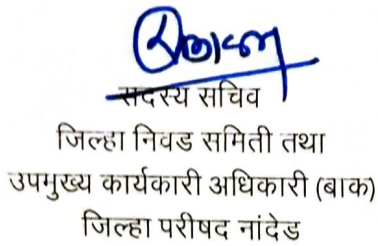 सदस्य सचिव
जिल्हा निवड समिती तथा
उपमुख्य कार्यकारी अधिकारी (बाक)
जिल्हा परीषद नांदेड